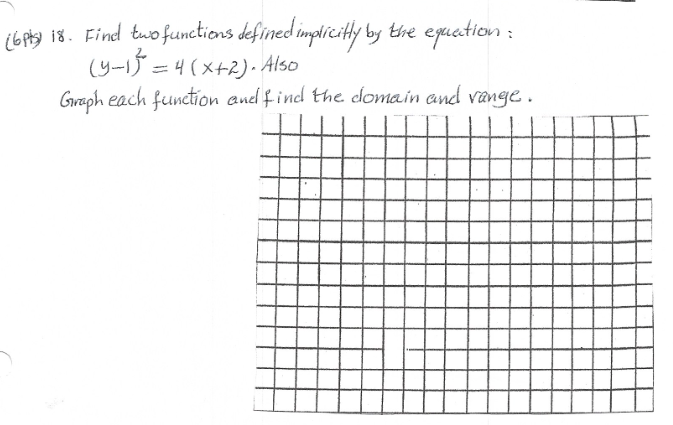 (6pts) 18. Find two functions defined implicitly by the equation :
(y-1)² = 4 (x+2). Also
Graph each function and find the domain and range.